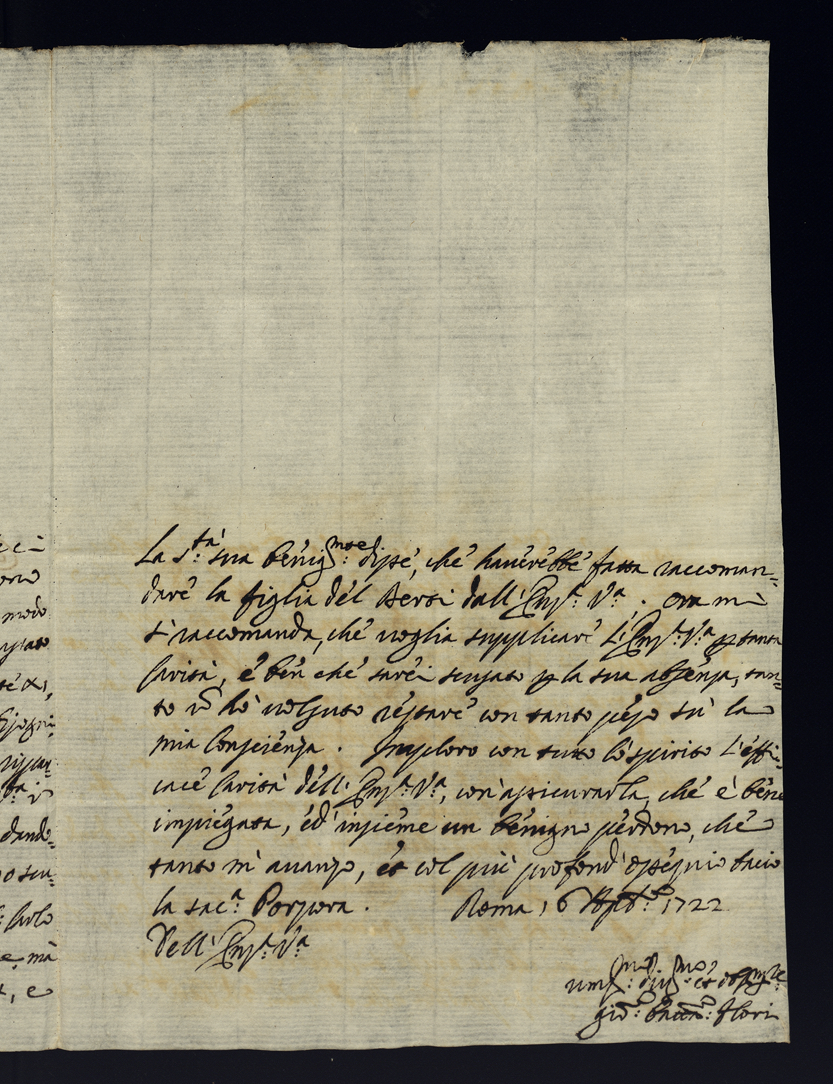 La S.tà sua benig.mte disse, che haverebbe fatta raccoman=
dare la figlia del Berti dall' Em.a V.a, . ora mi
si raccomanda, che voglia supplicare L'Em.a V.a p tanta
Carità, e ben che sarei scusato p la sua absenza, tan=
to nõ hò volsuto restare con tanto peso sù la
mia Conscienza . Imploro con tutto lo spirito L'effi=
cace Carità dell' Em.a V.a, con assicurarla, che è bene
impiegata, ed' insieme un benigno perdono, che
tanto m' avanzo, et col più profond' ossequio bacio
la sac.a Porpora . Roma, 6 1722
Dell' Em.a V.a
um.mo div.mo et
gio: Flori
ono
modo
dando=
Carlo
e, mà
, e